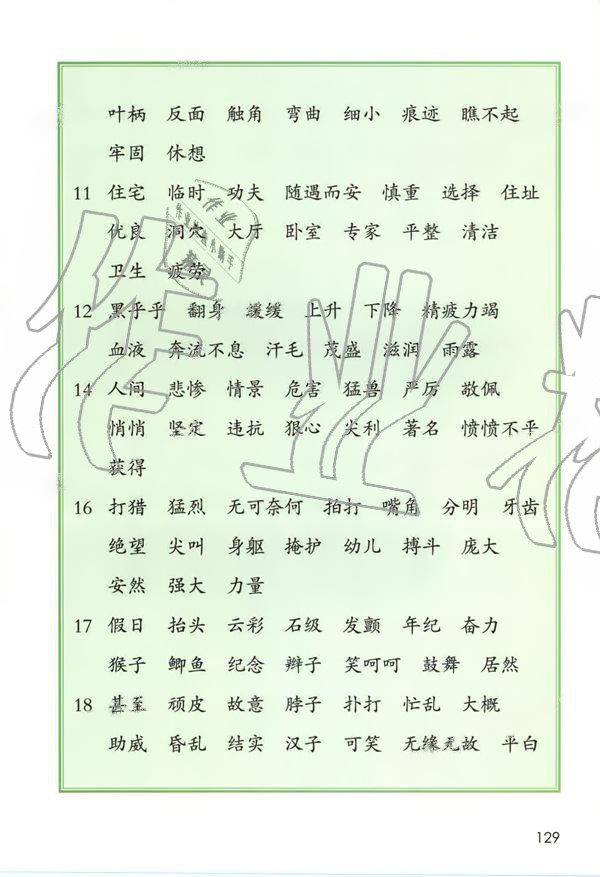 叶柄 反面 触角 弯曲 细小 痕迹 瞧不起
牢固 休想
11 住宅 临时 功夫 随遇而安 慎重 选择 住址
优良 洞穴 大厅 卧室 专家 平整 清洁
卫生 疲劳
12 黑乎乎 翻身 缓缓 上升 下降 精疲力竭
血液 奔流不息 汗毛 茂盛 滋润 雨露
14 人间 悲惨 情景 危害 猛兽 严厉 敬佩
悄悄 坚定 违抗 狠心 尖利 著名 愤愤不平
获得
16 打猎 猛烈 无可奈何 拍打 嘴角 分明 牙齿
绝望 尖叫 身躯 掩护 幼儿 搏斗 庞大
安然 强大 力量
17 假日 抬头 云彩 石级 发颤 年纪 奋力
猴子 鲫鱼 纪念 辫子 笑呵呵 鼓舞 居然
18 甚至 顽皮 故意 脖子 扑打 忙乱 大概
助威 昏乱 结实 汉子 可笑 无缘无故 平白
129
作业